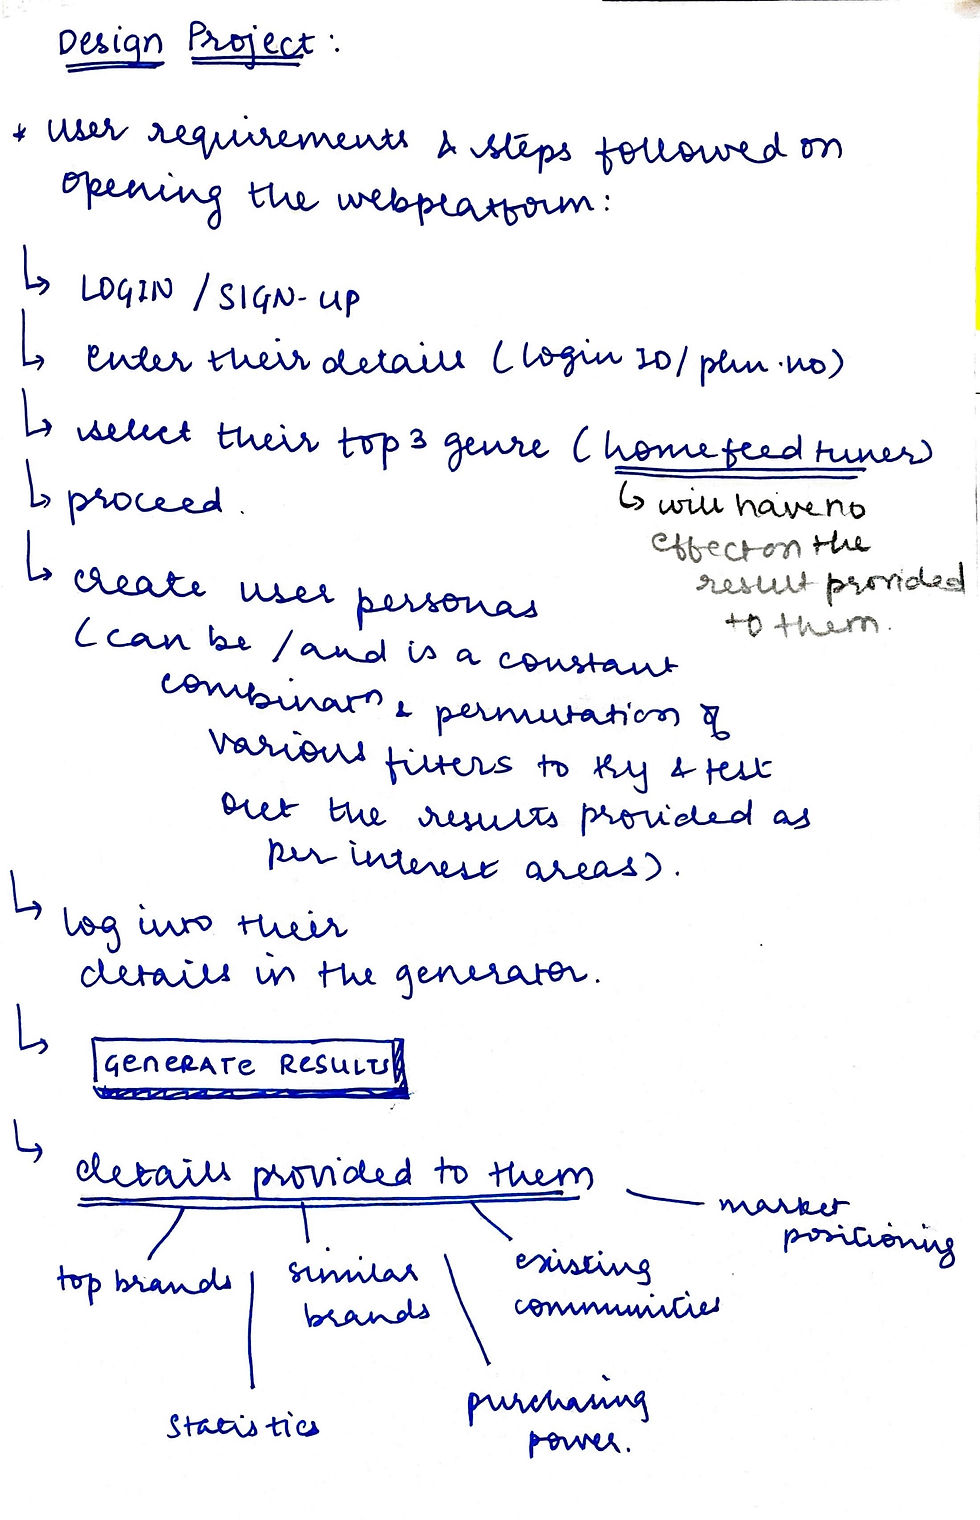 Design Project:
* User requirements & steps followed on
opening the webplatform:
↳ LOGIN / SIGN-UP
↳ enter their details (login ID / phn. no)
↳ select their top 3 genre (homefeed tuner)
↳ will have no
effect on the
result provided
to them.
↳ proceed.
↳ create user personas
(can be / and is a constant
combinatn & permutation of
various filters to try & test
out the results provided as
per interest areas).
↳ log into their
details in the generator.
↳ GENERATE RESULTS
↳ details provided to them
market
positioning
top brands
similar
brands
existing
communities
statistics
purchasing
power.